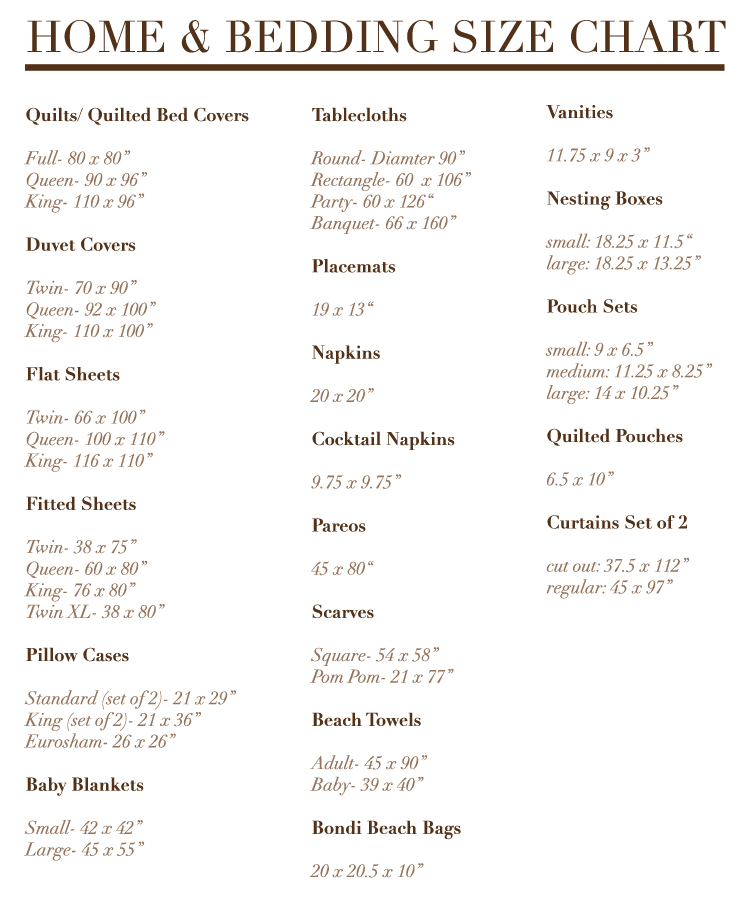 HOME & BEDDING SIZE CHART
Quilts/ Quilted Bed Covers
Full- 80 x 80”
Queen- 90 x 96”
King- 110 x 96”
Duvet Covers
Twin- 70 x 90”
Queen- 92 x 100”
King- 110 x 100”
Flat Sheets
Twin- 66 x 100”
Queen- 100 x 110”
King- 116 x 110”
Fitted Sheets
Twin- 38 x 75”
Queen- 60 x 80”
King- 76 x 80”
Twin XL- 38 x 80”
Pillow Cases
Standard (set of 2)- 21 x 29”
King (set of 2)- 21 x 36”
Eurosham- 26 x 26”
Baby Blankets
Small- 42 x 42”
Large- 45 x 55”
Tablecloths
Round- Diamter 90”
Rectangle- 60  x 106”
Party- 60 x 126“
Banquet- 66 x 160”
Placemats
19 x 13“
Napkins
20 x 20”
Cocktail Napkins
9.75 x 9.75”
Pareos
45 x 80“
Scarves
Square- 54 x 58”
Pom Pom- 21 x 77”
Beach Towels
Adult- 45 x 90”
Baby- 39 x 40”
Bondi Beach Bags
20 x 20.5 x 10”
Vanities
11.75 x 9 x 3”
Nesting Boxes
small: 18.25 x 11.5“
large: 18.25 x 13.25”
Pouch Sets
small: 9 x 6.5”
medium: 11.25 x 8.25”
large: 14 x 10.25”
Quilted Pouches
6.5 x 10”
Curtains Set of 2
cut out: 37.5 x 112”
regular: 45 x 97”